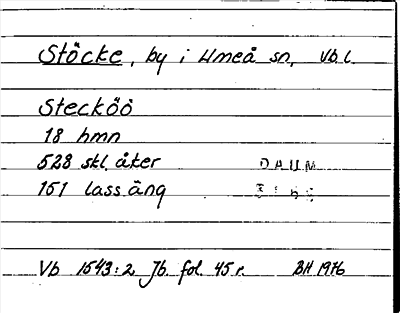 Stöcke, by i Umeå sn, Vb l.
Steckӧӧ
18 hmn
528 skl. åker DAUM
151 lass äng
Vb 1543:2 Jb. fol. 45 r. BH 1976